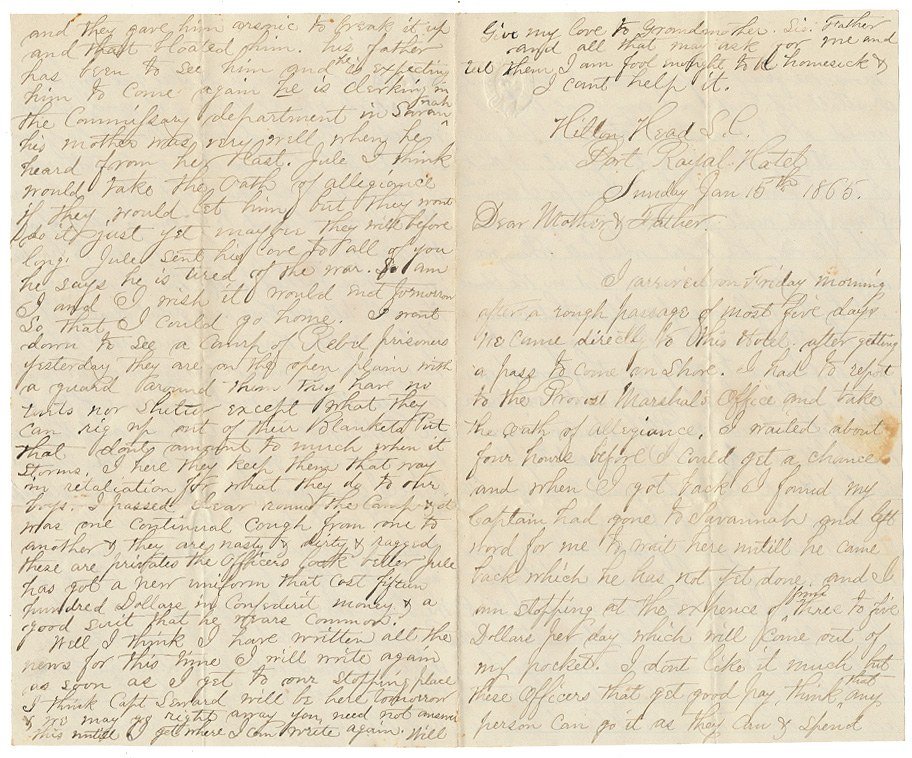 and they gave him arsnic to break it up
and that bloated him. his father
has been to see him and he is expecting
him to come again he is clerking in
the Commissary department in Savannah
his mother was very well when he
heard from her last. Jule I think
would take the oath of allegiance
if they would let him, but they wont
do it just yet maybe they will before
long. Jule sent his love to all of you
he says he is tired of the war. So am
I and I wish it would end tomorrow
so that I could go home. I went
down to see a Camp of Rebel prisoners
yesterday they are on the open plain with
a guard around them they have no
tents nor shelter except what they
can rig up out of their Blankets But
that dont amount to much when it
storms. I here they keep them that way
in retaliation for what they do to our
boys. I passed clear round the Camp & it
was one continual cough from one to
another & they are nasty & dirty & ragged
these are privates the Officers look better Jule
has got a new uniform that cost fifteen
hundred Dollars in Confederit money & a
good suit that he wears common.
Well I think I have written all the
news for this time I will write again
as soon as I get to our stopping place
I think Capt Seward will be here tomorrow
& we may go right away you need not answer
this untill I get where I can write again. Will
Give my love to Grandmother. Sis. Father
and all that may ask for me and
tell them I am fool enought to be homesick &
I cant help it.
Hilton Head S.C.
Port Royal Hotel
Sunday Jan 15th 1865.
Dear Mother & Father.
I arrived on Friday morning
after a rough passage of most five days
We came directly to this Hotel. after getting
a pass to come on shore. I had to report
to the Provost Marshals Office and take
the oath of allegiance. I waited about
four hours before I could get a chance
and when I got back I found my
Captain had gone to Savannah and left
word for me to wait here untill he came
back which he has not yet done. and I
am stopping at the expence of from three to five
Dollars per day which will come out of
my pocket. I dont like it much but
these Officers that get good pay, think that any
person can go it as they can & spend